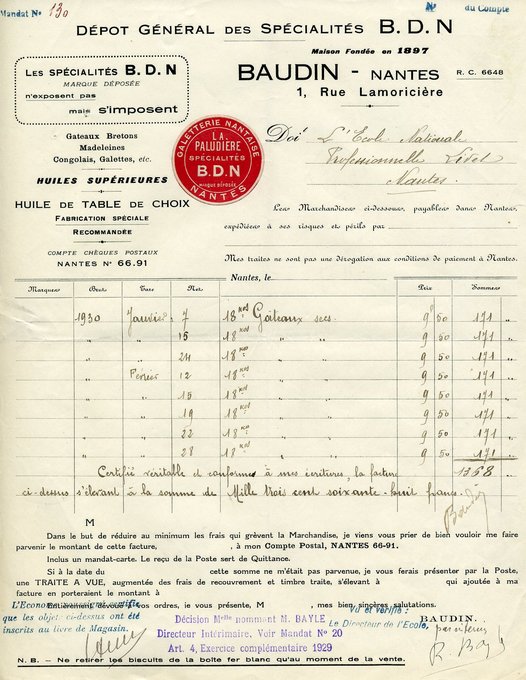 Mandat No 130
No du Compte
DÉPOT GÉNÉRAL DES SPÉCIALITÉS B.D.N
Maison Fondée en 1897
LES SPÉCIALITÉS B.D.N
MARQUE DÉPOSÉE
n'exposent pas
mais s'imposent
BAUDIN - NANTES R. C. 6648
1, Rue Lamoricière
Gateaux Bretons
Madeleines
Congolais, Galettes, etc.
HUILES SUPÉRIEURES
HUILE DE TABLE DE CHOIX
FABRICATION SPÉCIALE
RECOMMANDÉE
COMPTE CHÈQUES POSTAUX
NANTES No 66.91
GALETTERIE NANTAISE
LA
PALUDIÈRE
SPÉCIALITÉS
B.D.N
MARQUE DÉPOSÉE
NANTES
Doit L'Ecole Nationale
Professionnelle Livet
Nantes
Les Marchandises ci-dessous, payables dans Nantes,
expédiées à ses risques et périls par
Mes traites ne sont pas une dérogation aux conditions de paiement à Nantes.
Nantes, le
Marques Brut Tare Net Prix Sommes
1930 Janvier 7 18 kos Gâteaux secs 9 50 171
" " 15 18 kos " " 9 50 171
" " 24 18 kos " " 9 50 171
" Février 12 18 kos " " 9 50 171
" " 15 18 kos " " 9 50 171
" " 19 18 kos " " 9 50 171
" " 22 18 kos " " 9 50 171
" " 28 18 kos " " 9 50 171
Certifié véritable et conforme à mes écritures, la facture 1368
ci-dessus s'élevant à la somme de Mille trois cent soixante-huit francs.
Baudin
M
Dans le but de réduire au minimum les frais qui grèvent la Marchandise, je viens vous prier de bien vouloir me faire
parvenir le montant de cette facture, , à mon Compte Postal, NANTES 66-91.
Inclus un mandat-carte. Le reçu de la Poste sert de Quittance.
Si à la date du cette somme ne m'était pas parvenue, je vous ferais présenter par la Poste,
une TRAITE A VUE, augmentée des frais de recouvrement et timbre traite, s'élevant à qui ajoutée à ma
facture en porteraient le montant à
Entièrement dévoué à vos ordres, je vous présente, M , mes bien, sincères, salutations.
L'Econome soussigné certifie
que les objets ci-dessus ont été
inscrits au livre de Magasin.
Décision Melle nommant M. BAYLE
Directeur Intérimaire. Voir Mandat No 20
Art. 4, Exercice complémentaire 1929
Vu et Vérifié :
Le Directeur de l'Ecole,
BAUDIN.
par intérim
R. Bayle
N. B. - Ne retirer les biscuits de la boîte fer blanc qu'au moment de la vente.